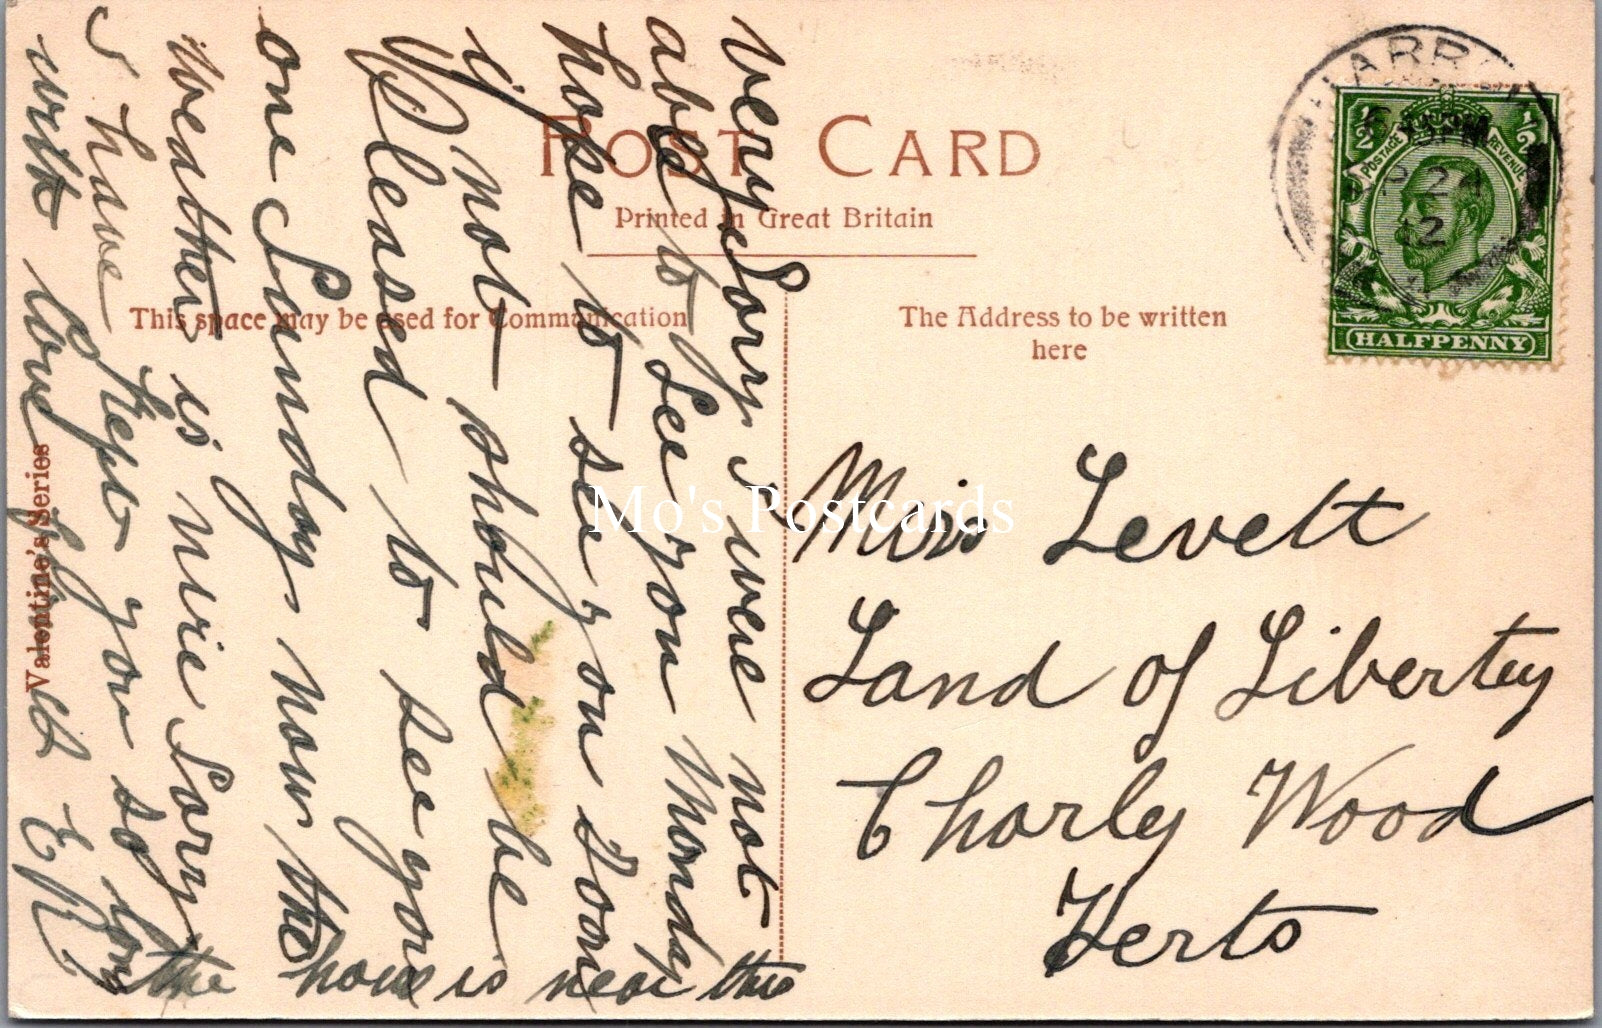 POST CARD
Printed in Great Britain
This space may be used for Communication
The Address to be written
here
Valentine's Series
HARR
AP 24
12
1/2 1/2
POSTAGE REVENUE
HALFPENNY
Very Sorry I were not
able to See you Monday
hope to see you Soon
if not should be
Pleased to see you
one Sunday now the
weather is nice Sorry
I have kept you so long
with love
E R
the house is near this
Miss Levett
Land of Liberty
Chorley Wood
Herts
Mo's Postcards